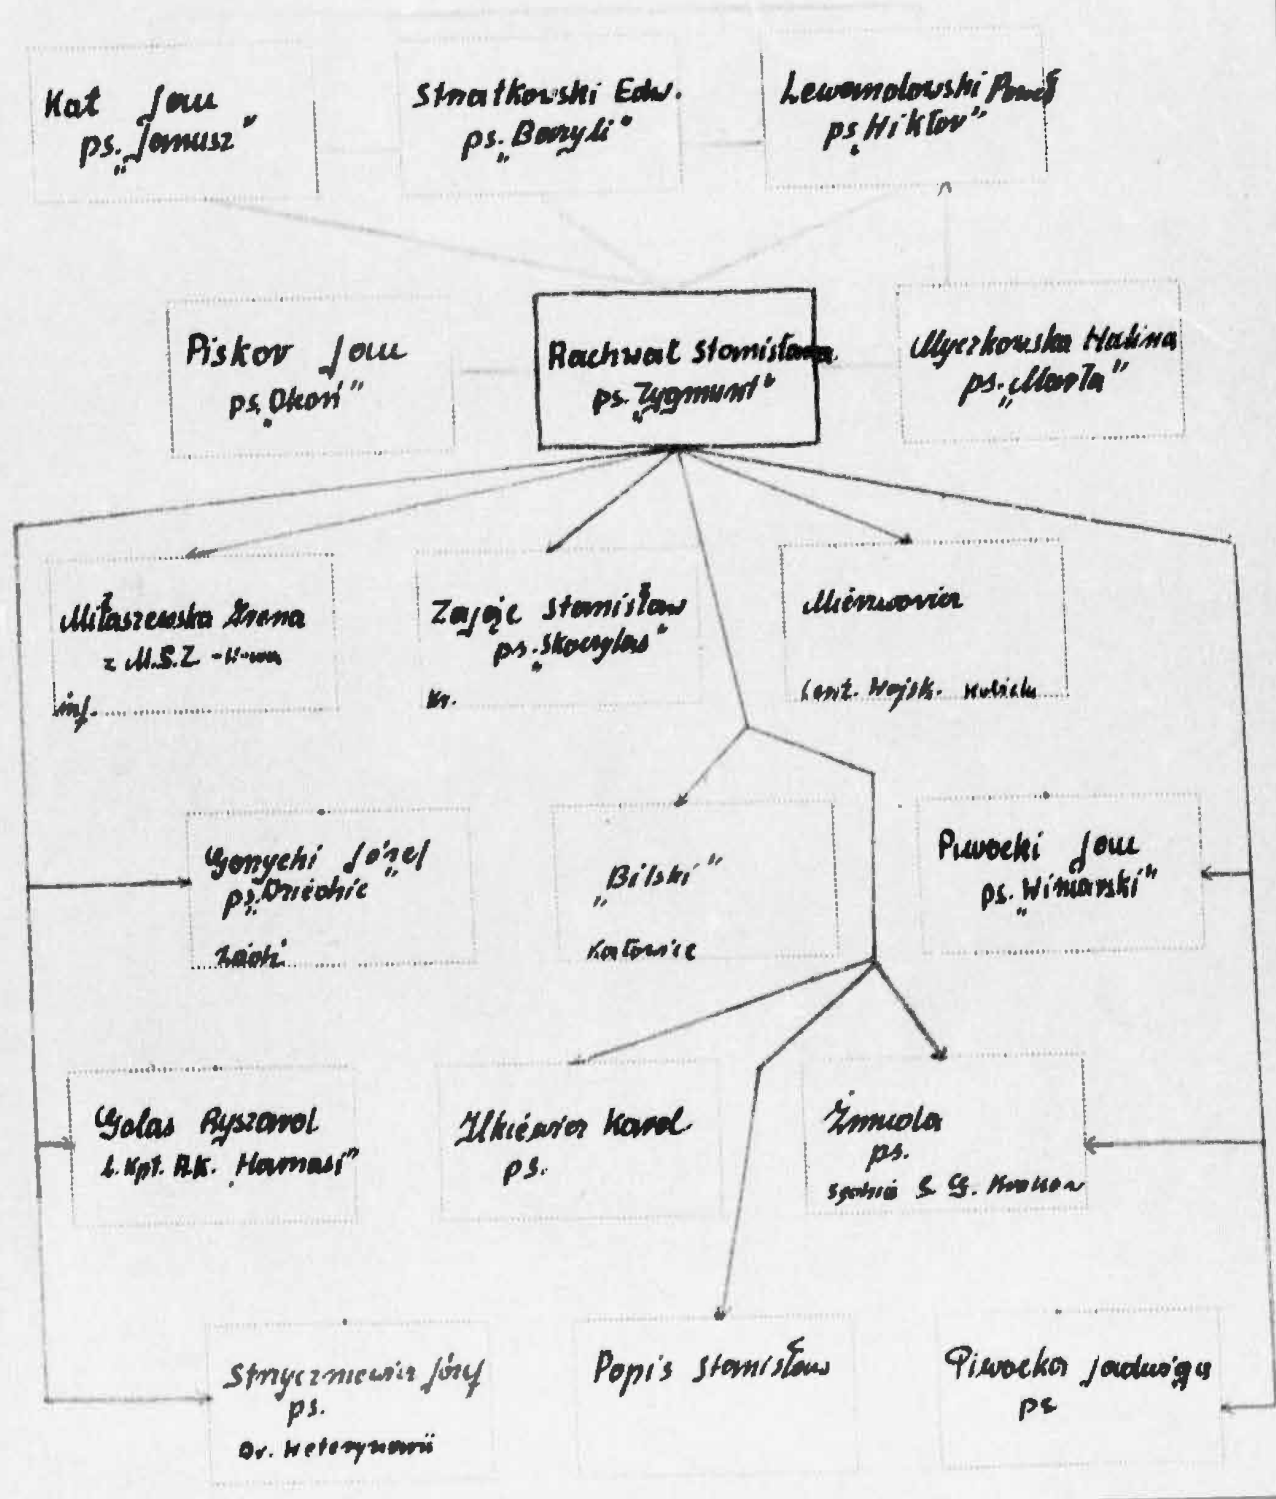 Kot Jan
ps. „Janusz"
Strzałkowski Edw.
ps. „Bazyli"
Lewandowski Paweł
ps. „Wiktor"
Piskor Jan
ps. „Okoń"
Rachwał Stanisława
ps. „Zygmunt"
Myczkowska Halina
ps. „Marta"
Miłaszewska Irena
z M.S.Z. - W-wa
inf.
Zając Stanisław
ps. „Skoczylas"
Kr.
Mierzwowicz
Wojsk.
Józef
ps.
„Bilski"
Katowice
Piwocki Jan
ps. „Winiarski"
Golas Ryszard
b. Kpt. A.K. „Harnasi"
Ilkiewicz Karol
ps.
Żmuda
ps.
S. G. Kraków
Stryczniewicz Józef
ps.
Dr. Weterynarii
Popis Stanisław
Piwocka Jadwiga
ps